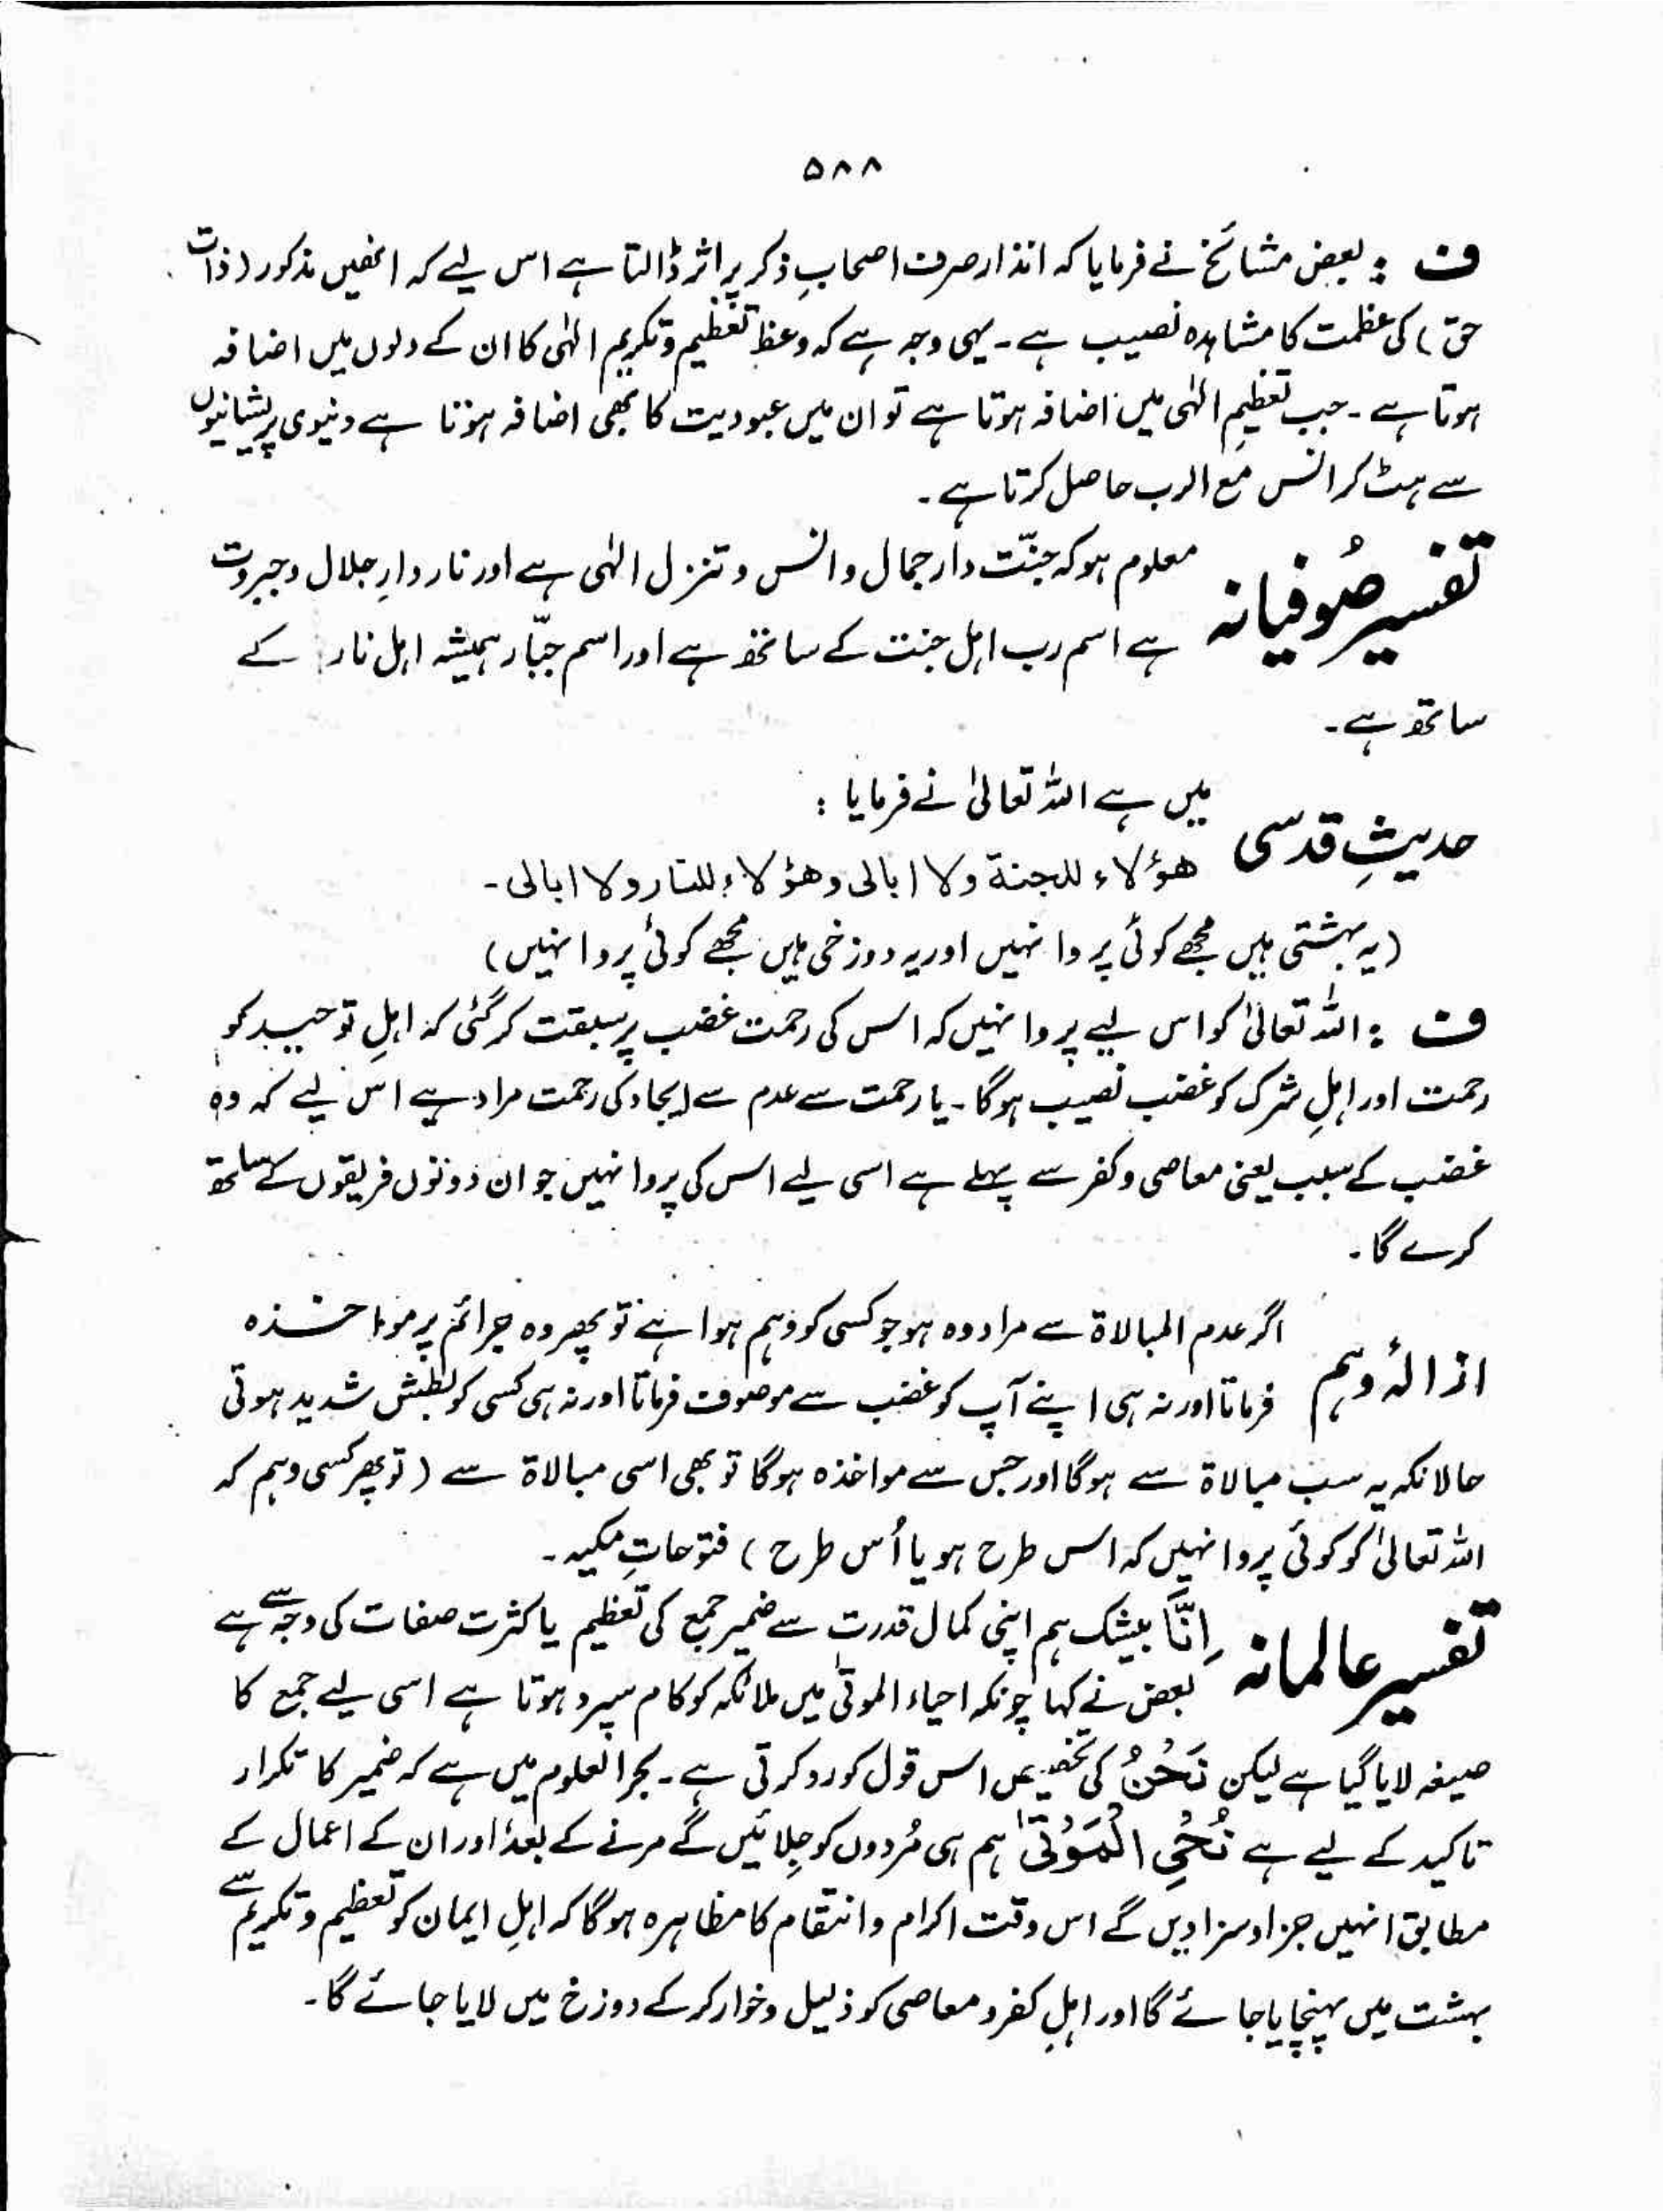 ۵۸۸
ف : بعض مشائخ نے فرمایا کہ انذار صرف اصحابِ ذکر پر اثر ڈالتا ہے اس لیے کہ انھیں مذکور (ذات
حق) کی عظمت کا مشاہدہ نصیب ہے۔ یہی وجہ ہے کہ وعظ تعظیم و تکریم الٰہی کا ان کے دلوں میں اضافہ
ہوتا ہے۔ جب تعظیمِ الٰہی میں اضافہ ہوتا ہے تو ان میں عبودیت کا بھی اضافہ ہوتا ہے دنیوی پریشانیوں
سے ہٹ کر انس مع الرب حاصل کرتا ہے۔
تفسیر صُوفیانہ معلوم ہو کہ جنّت دارِ جمال و انس و تنزل الٰہی ہے اور نار دارِ جلال و جبروت
ہے اسم رب اہل جنت کے ساتھ ہے اور اسم جبّار ہمیشہ اہل نار کے
ساتھ ہے۔
حدیثِ قدسی میں ہے اللہ تعالیٰ نے فرمایا :
ھؤلاء للجنة ولا ابالی وھؤلاء للنار ولا ابالی۔
(یہ بہشتی ہیں مجھے کوئی پروا نہیں اور یہ دوزخی ہیں مجھے کوئی پروا نہیں)
ف : اللہ تعالیٰ کو اس لیے پروا نہیں کہ اس کی رحمت غضب پر سبقت کر گئی کہ اہلِ توحید کو
رحمت اور اہلِ شرک کو غضب نصیب ہوگا۔ یا رحمت سے عدم سے ایجاد کی رحمت مراد ہے اس لیے کہ وہ
غضب کے سبب یعنی معاصی و کفر سے پہلے ہے اسی لیے اس کی پروا نہیں جو ان دونوں فریقوں کے ساتھ
کرے گا۔
ازالۂ وہم اگر عدم المبالاۃ سے مراد وہ ہو جو کسی کو وہم ہوا ہے تو پھر وہ جرائم پر مواخذہ
فرماتا اور نہ ہی اپنے آپ کو غضب سے موصوف فرماتا اور نہ ہی کسی کو بطش شدید ہوتی
حالانکہ یہ سب مبالاۃ سے ہوگا اور جس سے مواخذہ ہوگا تو بھی اسی مبالاۃ سے (تو پھر کسی وہم کہ
اللہ تعالیٰ کو کوئی پروا نہیں کہ اس طرح ہو یا اُس طرح) فتوحاتِ مکیہ۔
تفسیر عالمانہ اِنَّا بیشک ہم اپنی کمال قدرت سے ضمیر جمع کی تعظیم یا کثرت صفات کی وجہ سے ہے
بعض نے کہا چونکہ احیاء الموتیٰ میں ملائکہ کو کام سپرد ہوتا ہے اسی لیے جمع کا
صیغہ لایا گیا ہے لیکن نَحْنُ کی تخصیص اس قول کو رد کرتی ہے۔ بحر العلوم میں ہے کہ ضمیر کا تکرار
تاکید کے لیے ہے نُحْیِ الْمَوْتٰی ہم ہی مُردوں کو جِلائیں گے مرنے کے بعد اور ان کے اعمال کے
مطابق انہیں جزا و سزا دیں گے اس وقت اکرام و انتقام کا مظاہرہ ہوگا کہ اہلِ ایمان کو تعظیم و تکریم سے
بہشت میں پہنچایا جائے گا اور اہلِ کفر و معاصی کو ذلیل و خوار کر کے دوزخ میں لایا جائے گا۔